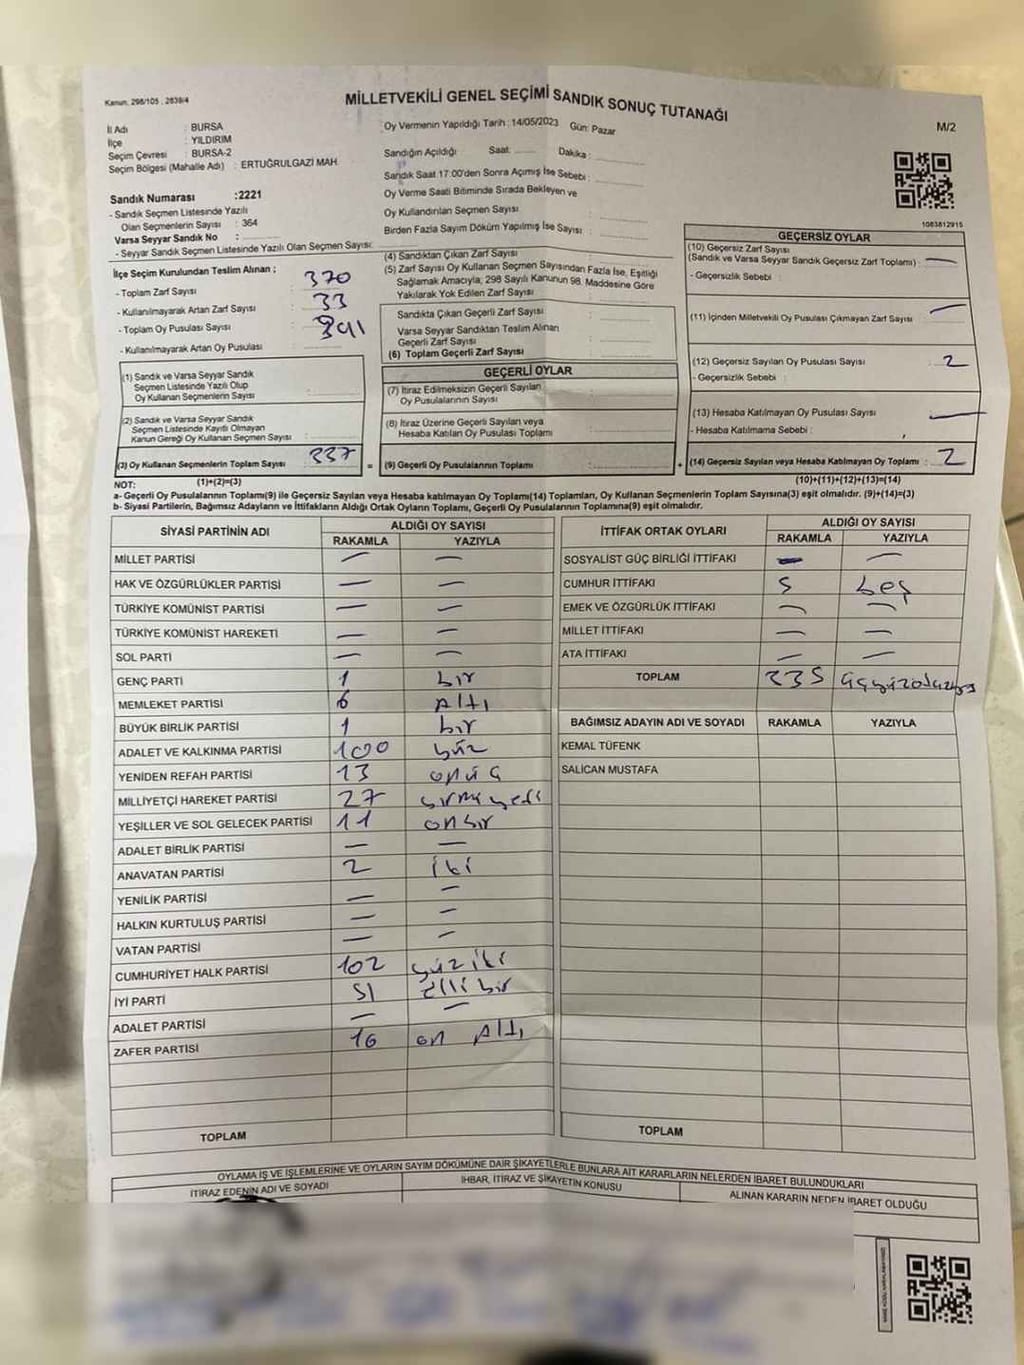 Kanun. 298/105 . 2839/4
MİLLETVEKİLİ GENEL SEÇİMİ SANDIK SONUÇ TUTANAĞI
M/2
İl Adı : BURSA
İlçe : YILDIRIM
Seçim Çevresi : BURSA-2
Seçim Bölgesi (Mahalle Adı) : ERTUĞRULGAZİ MAH.
Sandık Numarası :2221
- Sandık Seçmen Listesinde Yazılı
Olan Seçmenlerin Sayısı : 364
Varsa Seyyar Sandık No :
- Seyyar Sandık Seçmen Listesinde Yazılı Olan Seçmen Sayısı:
Oy Vermenin Yapıldığı Tarih :14/05/2023 Gün: Pazar
Sandığın Açıldığı Saat: Dakika :
Sandık Saat 17:00'den Sonra Açımış İse Sebebi :
Oy Verme Saati Bitiminde Sırada Bekleyen ve
Oy Kullandırılan Seçmen Sayısı :
Birden Fazla Sayım Döküm Yapılmış İse Sayısı :
1083812915
İlçe Seçim Kurulundan Teslim Alınan ;
- Toplam Zarf Sayısı : 370
- Kullanılmayarak Artan Zarf Sayısı : 33
- Toplam Oy Pusulası Sayısı : 391
- Kullanılmayarak Artan Oy Pusulası :
(1) Sandık ve Varsa Seyyar Sandık
Seçmen Listesinde Yazılı Olup
Oy Kullanan Seçmenlerin Sayısı :
(2) Sandık ve Varsa Seyyar Sandık
Seçmen Listesinde Kayıtlı Olmayan
Kanun Gereği Oy Kullanan Seçmen Sayısı :
(3) Oy Kullanan Seçmenlerin Toplam Sayısı : 337
(4) Sandıktan Çıkan Zarf Sayısı :
(5) Zarf Sayısı Oy Kullanan Seçmen Sayısından Fazla İse, Eşitliği
Sağlamak Amacıyla, 298 Sayılı Kanunun 98. Maddesine Göre
Yakılarak Yok Edilen Zarf Sayısı :
Sandıkta Çıkan Geçerli Zarf Sayısı :
Varsa Seyyar Sandıktan Teslim Alınan
Geçerli Zarf Sayısı :
(6) Toplam Geçerli Zarf Sayısı :
GEÇERLİ OYLAR
(7) İtiraz Edilmeksizin Geçerli Sayılan
Oy Pusulalarının Sayısı :
(8) İtiraz Üzerine Geçerli Sayılan veya
Hesaba Katılan Oy Pusulası Toplamı :
= (9) Geçerli Oy Pusulalarının Toplamı :
GEÇERSİZ OYLAR
(10) Geçersiz Zarf Sayısı
(Sandık ve Varsa Seyyar Sandık Geçersiz Zarf Toplamı) : —
- Geçersizlik Sebebi :
(11) İçinden Milletvekili Oy Pusulası Çıkmayan Zarf Sayısı : —
(12) Geçersiz Sayılan Oy Pusulası Sayısı : 2
- Geçersizlik Sebebi :
(13) Hesaba Katılmayan Oy Pusulası Sayısı : —
- Hesaba Katılmama Sebebi :
+ (14) Geçersiz Sayılan veya Hesaba Katılmayan Oy Toplamı : 2
NOT: (1)+(2)=(3) (10)+(11)+(12)+(13)=(14)
a- Geçerli Oy Pusulalarının Toplamı(9) ile Geçersiz Sayılan veya Hesaba katılmayan Oy Toplamı(14) Toplamları, Oy Kullanan Seçmenlerin Toplam Sayısına(3) eşit olmalıdır. (9)+(14)=(3)
b- Siyasi Partilerin, Bağımsız Adayların ve İttifakların Aldığı Ortak Oyların Toplamı, Geçerli Oy Pusulalarının Toplamına(9) eşit olmalıdır.
SİYASİ PARTİNİN ADI ALDIĞI OY SAYISI
RAKAMLA YAZIYLA
MİLLET PARTİSİ — —
HAK VE ÖZGÜRLÜKLER PARTİSİ — —
TÜRKİYE KOMÜNİST PARTİSİ — —
TÜRKİYE KOMÜNİST HAREKETİ — —
SOL PARTİ — —
GENÇ PARTİ 1 bir
MEMLEKET PARTİSİ 6 Altı
BÜYÜK BİRLİK PARTİSİ 1 bir
ADALET VE KALKINMA PARTİSİ 100 yüz
YENİDEN REFAH PARTİSİ 13 onüç
MİLLİYETÇİ HAREKET PARTİSİ 27 yirmi yedi
YEŞİLLER VE SOL GELECEK PARTİSİ 11 onbir
ADALET BİRLİK PARTİSİ — —
ANAVATAN PARTİSİ 2 iki
YENİLİK PARTİSİ — —
HALKIN KURTULUŞ PARTİSİ — —
VATAN PARTİSİ — —
CUMHURİYET HALK PARTİSİ 102 yüz iki
İYİ PARTİ 51 elli bir
ADALET PARTİSİ — —
ZAFER PARTİSİ 16 on Altı
TOPLAM
İTTİFAK ORTAK OYLARI ALDIĞI OY SAYISI
RAKAMLA YAZIYLA
SOSYALİST GÜÇ BİRLİĞİ İTTİFAKI — —
CUMHUR İTTİFAKI 5 beş
EMEK VE ÖZGÜRLÜK İTTİFAKI — —
MİLLET İTTİFAKI — —
ATA İTTİFAKI — —
TOPLAM 335 üçyüzotuzbeş
BAĞIMSIZ ADAYIN ADI VE SOYADI RAKAMLA YAZIYLA
KEMAL TÜFENK
SALİCAN MUSTAFA
TOPLAM
OYLAMA İŞ VE İŞLEMLERİNE VE OYLARIN SAYIM DÖKÜMÜNE DAİR ŞİKAYETLERLE BUNLARA AİT KARARLARIN NELERDEN İBARET BULUNDUKLARI
İTİRAZ EDENİN ADI VE SOYADI İHBAR, İTİRAZ VE ŞİKAYETİN KONUSU ALINAN KARARIN NEDEN İBARET OLDUĞU